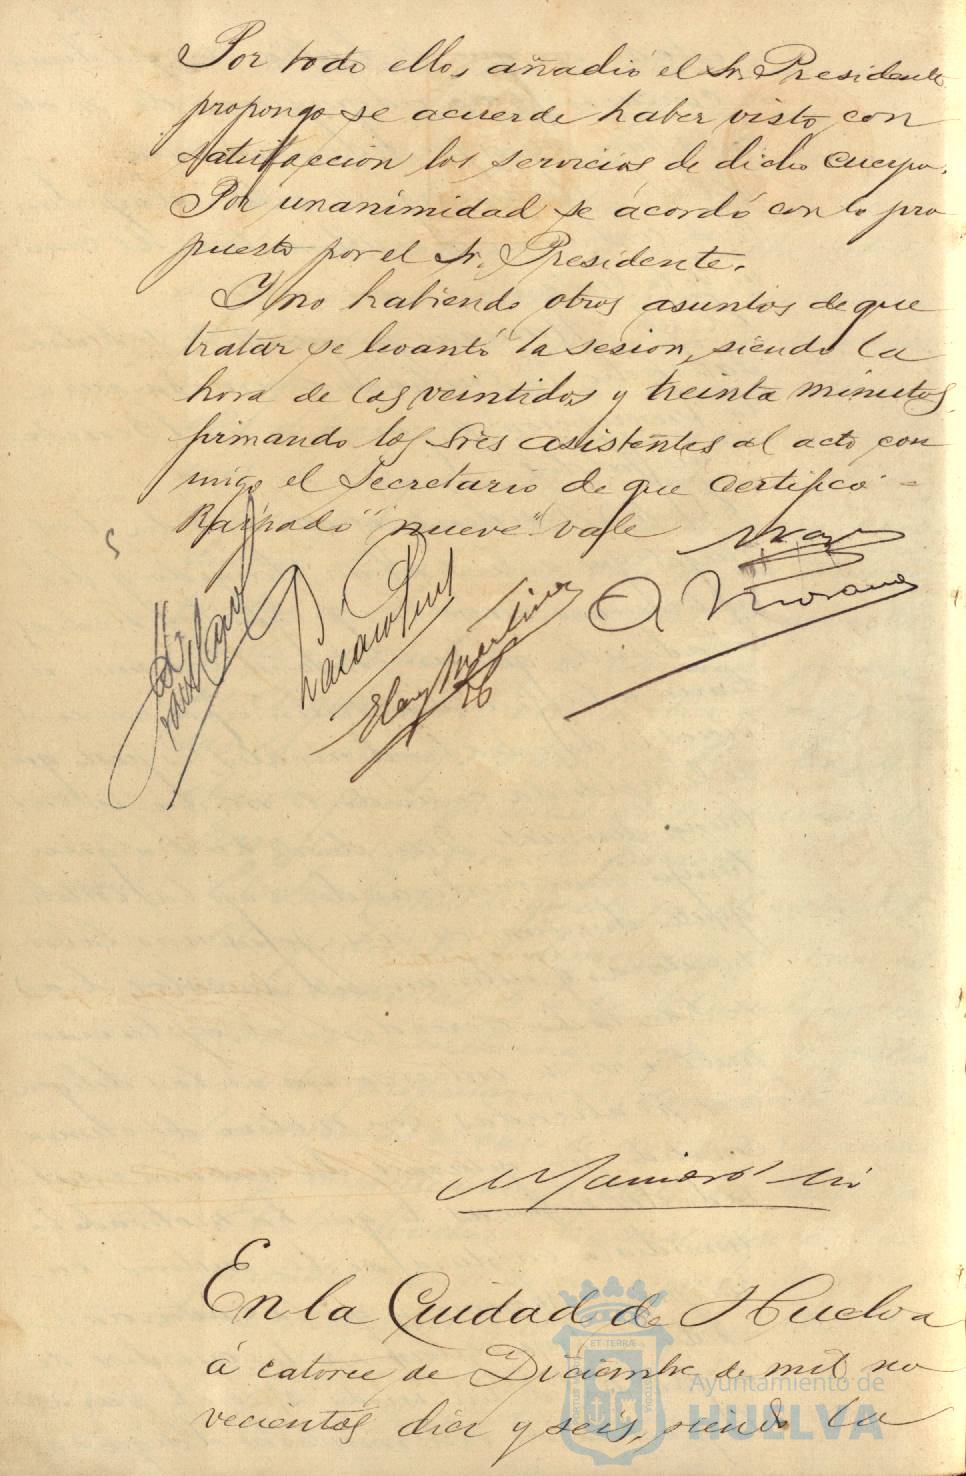 Por todo ellos añadió el Sr. Presidente
propongo se acuerde haber visto con
satisfaccion los servicios de dicho cuerpo.
Por unanimidad se ácordó con lo pro
puesto por el Sr. Presidente.
Y no habiendo otros asuntos de que
tratar se levantó la sesion, siendo la
hora de las veintidos y treinta minutos
firmando los Sres asistentes al acto con
migo el Secretario de que certifico =
Raspado "nueve" vale
A Morano
Eleuy Martinez
En la Cuidad de Huelva
á catorce de Diciembre de mil no
vecientos diez y seis, siendo la
ET TERRÆ
Ayuntamiento de
HUELVA